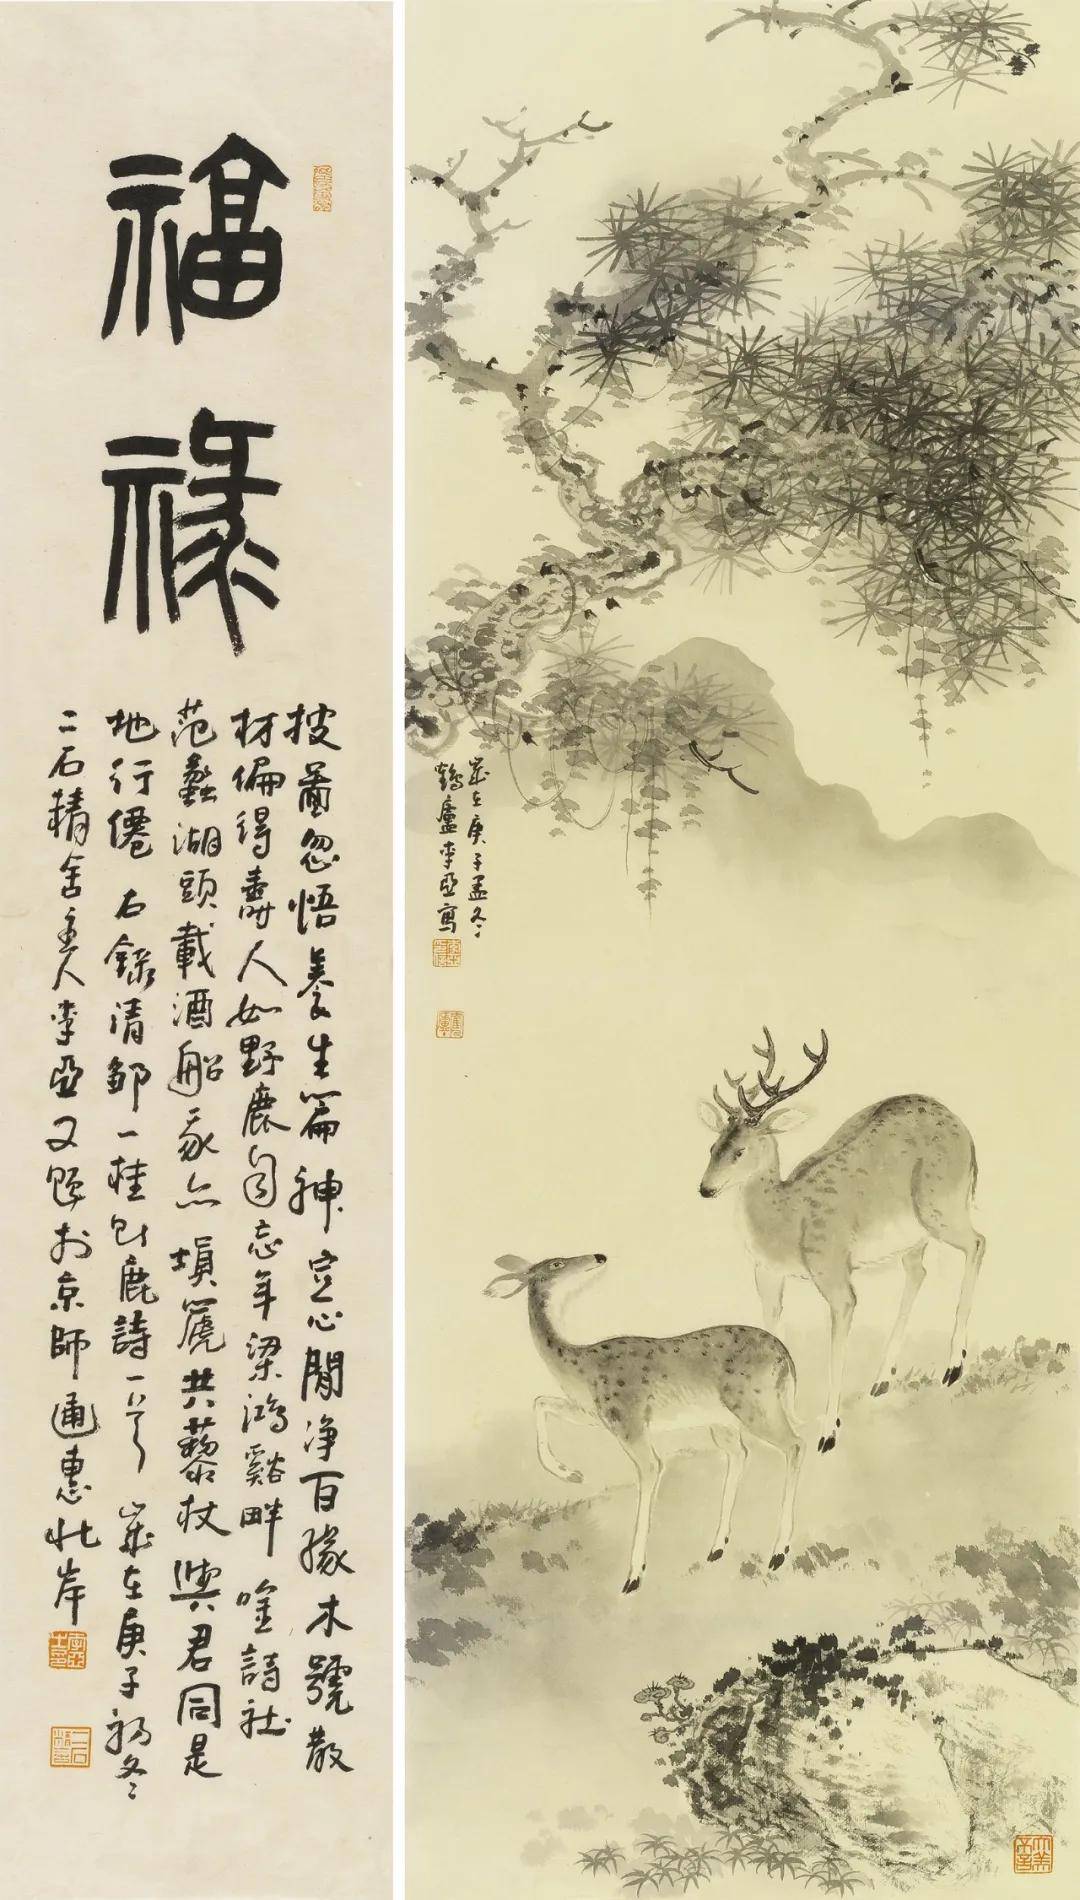 福祿
披圖忽悟養生篇神定心閒淨百緣木號散
材偏得壽人如野鹿自忘年梁鴻谿畔唫詩社
范蠡湖頭載酒船我亦塤篪共藜杖與君同是
地行僊 右錄清鄒一桂鹿詩一首 歲在庚子初冬
二石精舍主人李亞又題於京師通惠北岸
二石精舍
歲在庚子孟冬
鶴廬李亞寫
大美不言